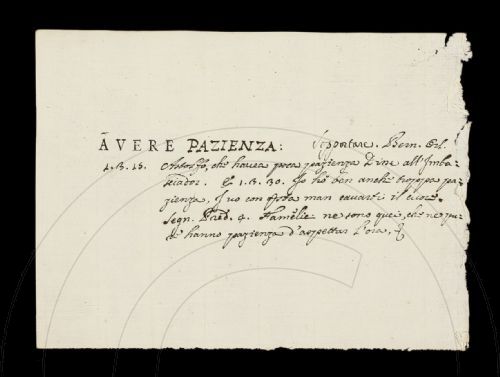 ÃVERE PAZIENZA: Sopportare. Bern. Orl.
1.B. 15. Astolfo, che havea poca pazienza Dine all'Imba-
sciador. E 1.B. 30. Io hò ben anche troppa pa-
zienza, I vo con questa man cavarti il cuore.
Segn. Pred. 4. Famelici ne sono que', che ne pu-
re hanno pazienza d'aspettar l'ora, &